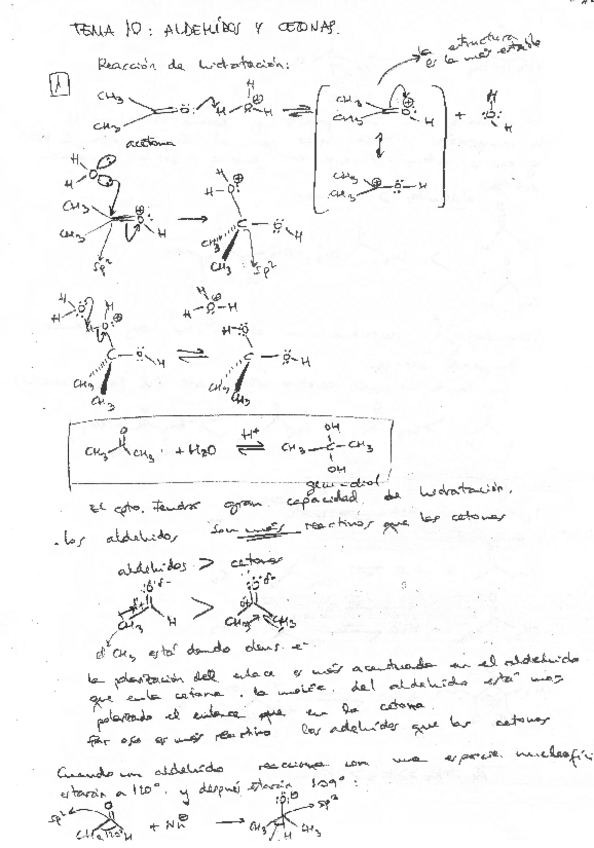 TEMA 10: ALDEHÍDOS Y CETONAS.
Reacción de hidratación:
la estructura
es la más estable
1
CH3
CH3
acetona
sp2
sp2
CH3 CH3 + H2O H+ CH3 C CH3
OH
OH
gem-diol
El cpto. tendrá gran capacidad de hidratación.
. los aldehidos son más reactivos que las cetonas
aldehidos > cetonas
el CH3 está dando dens. e-
la polarización del enlace es más acentuada en el aldehido
que en la cetona. la moléc. del aldehido está más
polarizado el enlace que en la cetona.
Por eso es más reactivo los aldehidos que las cetonas
Cuando un aldehido reacciona con una especie nucleofí
estarán a 120º y después estarán 109º:
sp2 CH3 120º H + Nu⊖ → CH3 H CH3 sp3